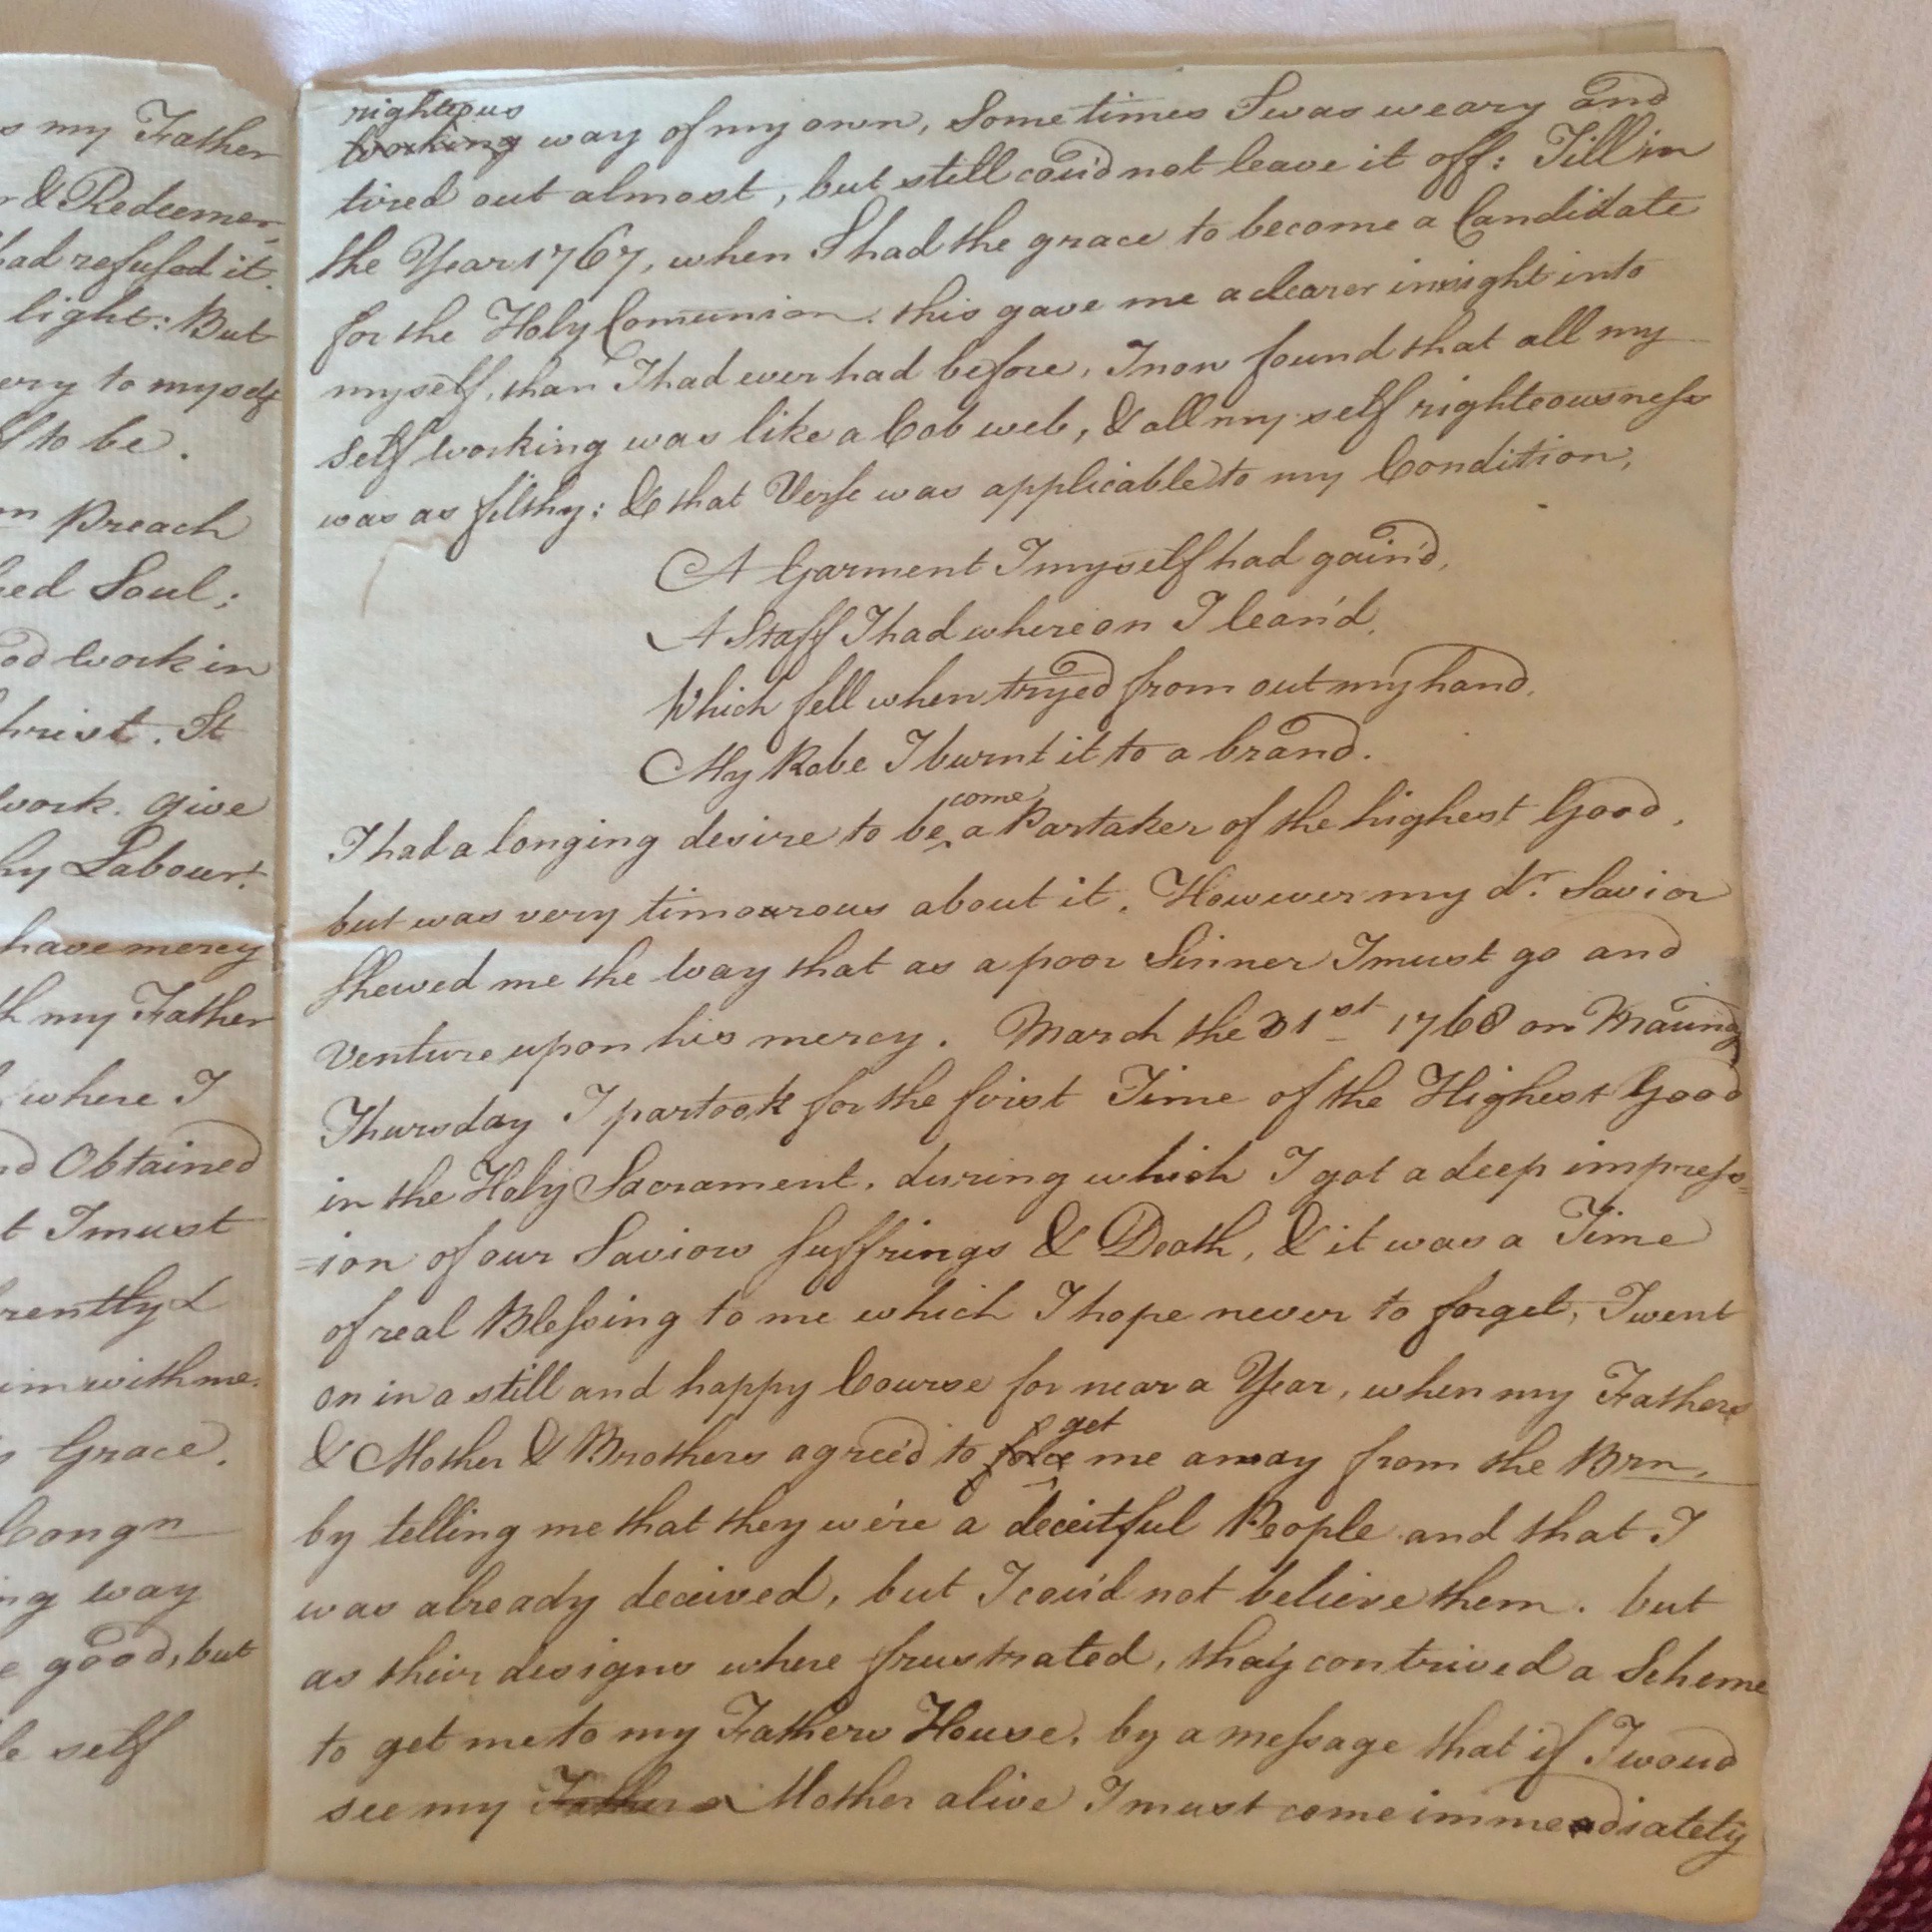 s my Father
r & Redeemer,
had refused it.
light: But
ery to myself
to be.
Preach
ed Soul;
od work in
hrist. It
work. give
hy Labour!
have mercy
h my Father
where I
d Obtained
t I must
rently &
im with me.
s Grace.
Congn
ng way
e good, but
le self
righteous
working way of my own, Sometimes I was weary and
tired out almost, but still cou'd not leave it off: Till in
the Year 1767, when I had the grace to become a Candidate
for the Holy Comunion. this gave me a clearer insight into
myself, than I had ever had before, I now found that all my
self working was like a Cob web, & all my self righteousness
was as filthy; & that Verse was applicable to my Condition,
A Garment I myself had gain'd,
A Staff I had whereon I lean'd,
Which fell when tryed from out my hand,
My Robe I burnt it to a brand.
come
I had a longing desire to be ‸ a Partaker of the highest Good,
but was very timourous about it. However my dr. Savior
shewed me the way that as a poor Sinner I must go and
venture upon his mercy. March the 31st 1768 on Maundy
Thursday I partook for the first Time of the Highest Good
in the Holy Sacrament, during which I got a deep impress=
=ion of our Saviors suffrings & Death, & it was a Time
of real Blessing to me which I hope never to forget, I went
on in a still and happy Course for near a Year, when my Fathers
get
& Mother & Brothers agree'd to force me away from the Brn,
by telling me that they we're a deceitful People and that I
was already deceived, but I cou'd not believe them. but
as their designs where frustrated, thay contrived a Scheme
to get me to my Fathers House, by a message that if I woud
see my Father & Mother alive I must come immediately